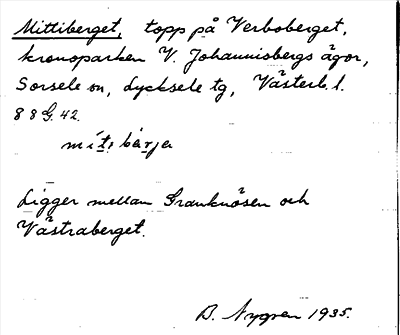 Mittiberget, topp på Verboberget,
kronoparken V. Johannisbergs ägor,
Sorsele sn, Lycksele tg, Västerb. l.
88 G. 42.
mít i bärja
Ligger mellan Granknösen och
Västraberget.
B. Nygren 1935.